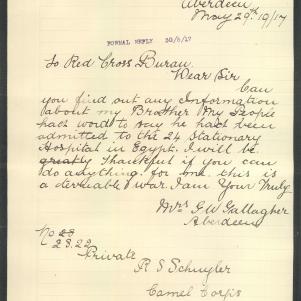 Aberdeen
May 29th 1917
FORMAL REPLY 30/6/17
To Red Cross Burau.
Dear Sir
Can
you find out any Information
about my Brother My People
had word to say he had been
admitted to the 24 Stationary
Hospital in Egypt. I will be
greatly thankful if you can
do anything for me this is
a war. I am Your Truly
Mrs E W Gallagher
Aberdeen
No 28
2822
Private
R S Schuyler
Camel Corps